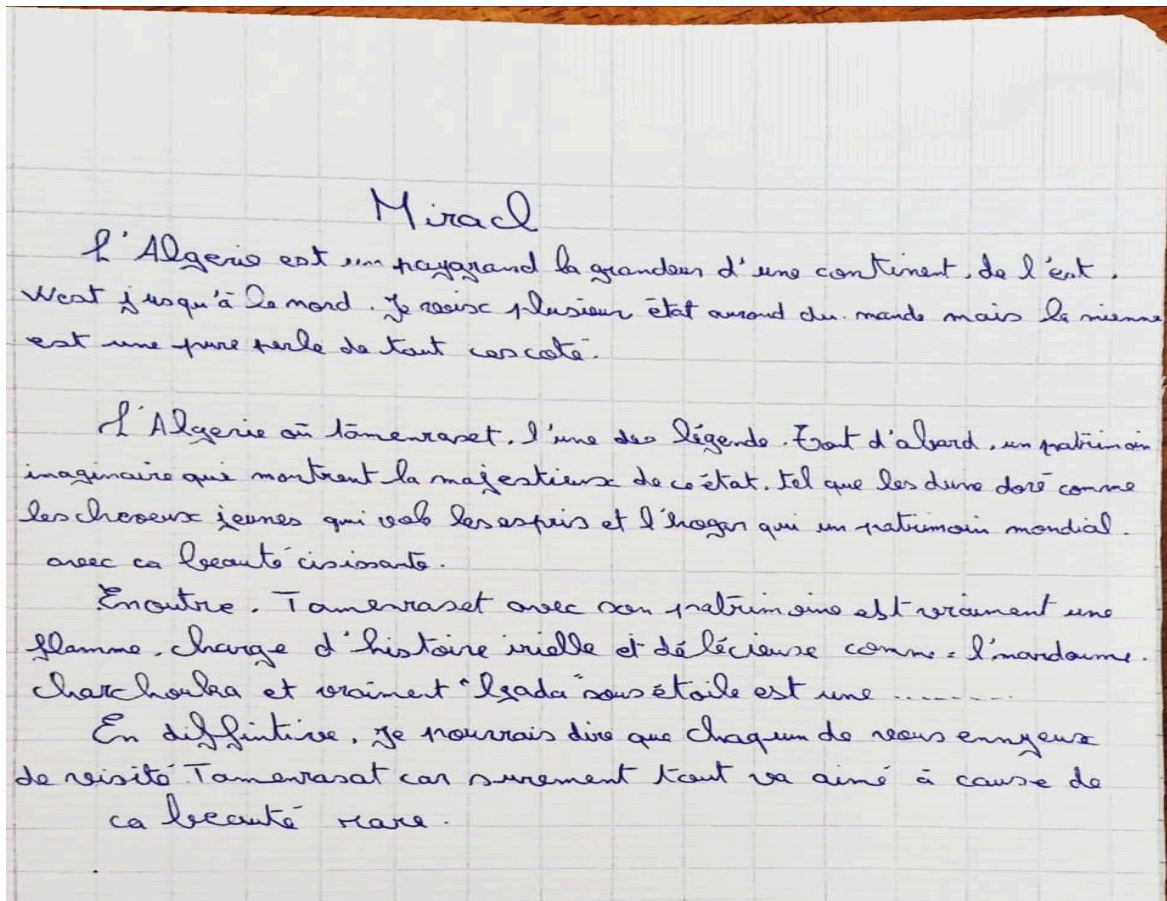 Miracl
L'Algerie est un paygrand la grandeur d'une continent, de l'est,
West jusqu'à le nord. Je voisx plusieur état arond du monde mais la mienne
est une pure perle de tout cescoté.
L'Algerie où tâmenraset, l'une des légende. Tout d'abord, un patrimoin
imaginaire qui montrent la majestieux de ce état, tel que les dune doré comme
les cheveux jeunes qui vole les espris et l'hogar qui un patrimoin mondial.
avec ca beauté cisissante.
Enoutre, Tamenraset avec son patrimoine est vraiment une
flamme, charge d'histoire irielle et délécieuse comme: l'mardoume.
charchouka et vraiment "lgada" sous étoile est une ..........
En diffintive, je pourrais dire que chaqun de vous ennyeux
de visité Tamenrasat car surement tout va aimé à cause de
ca beauté rare.